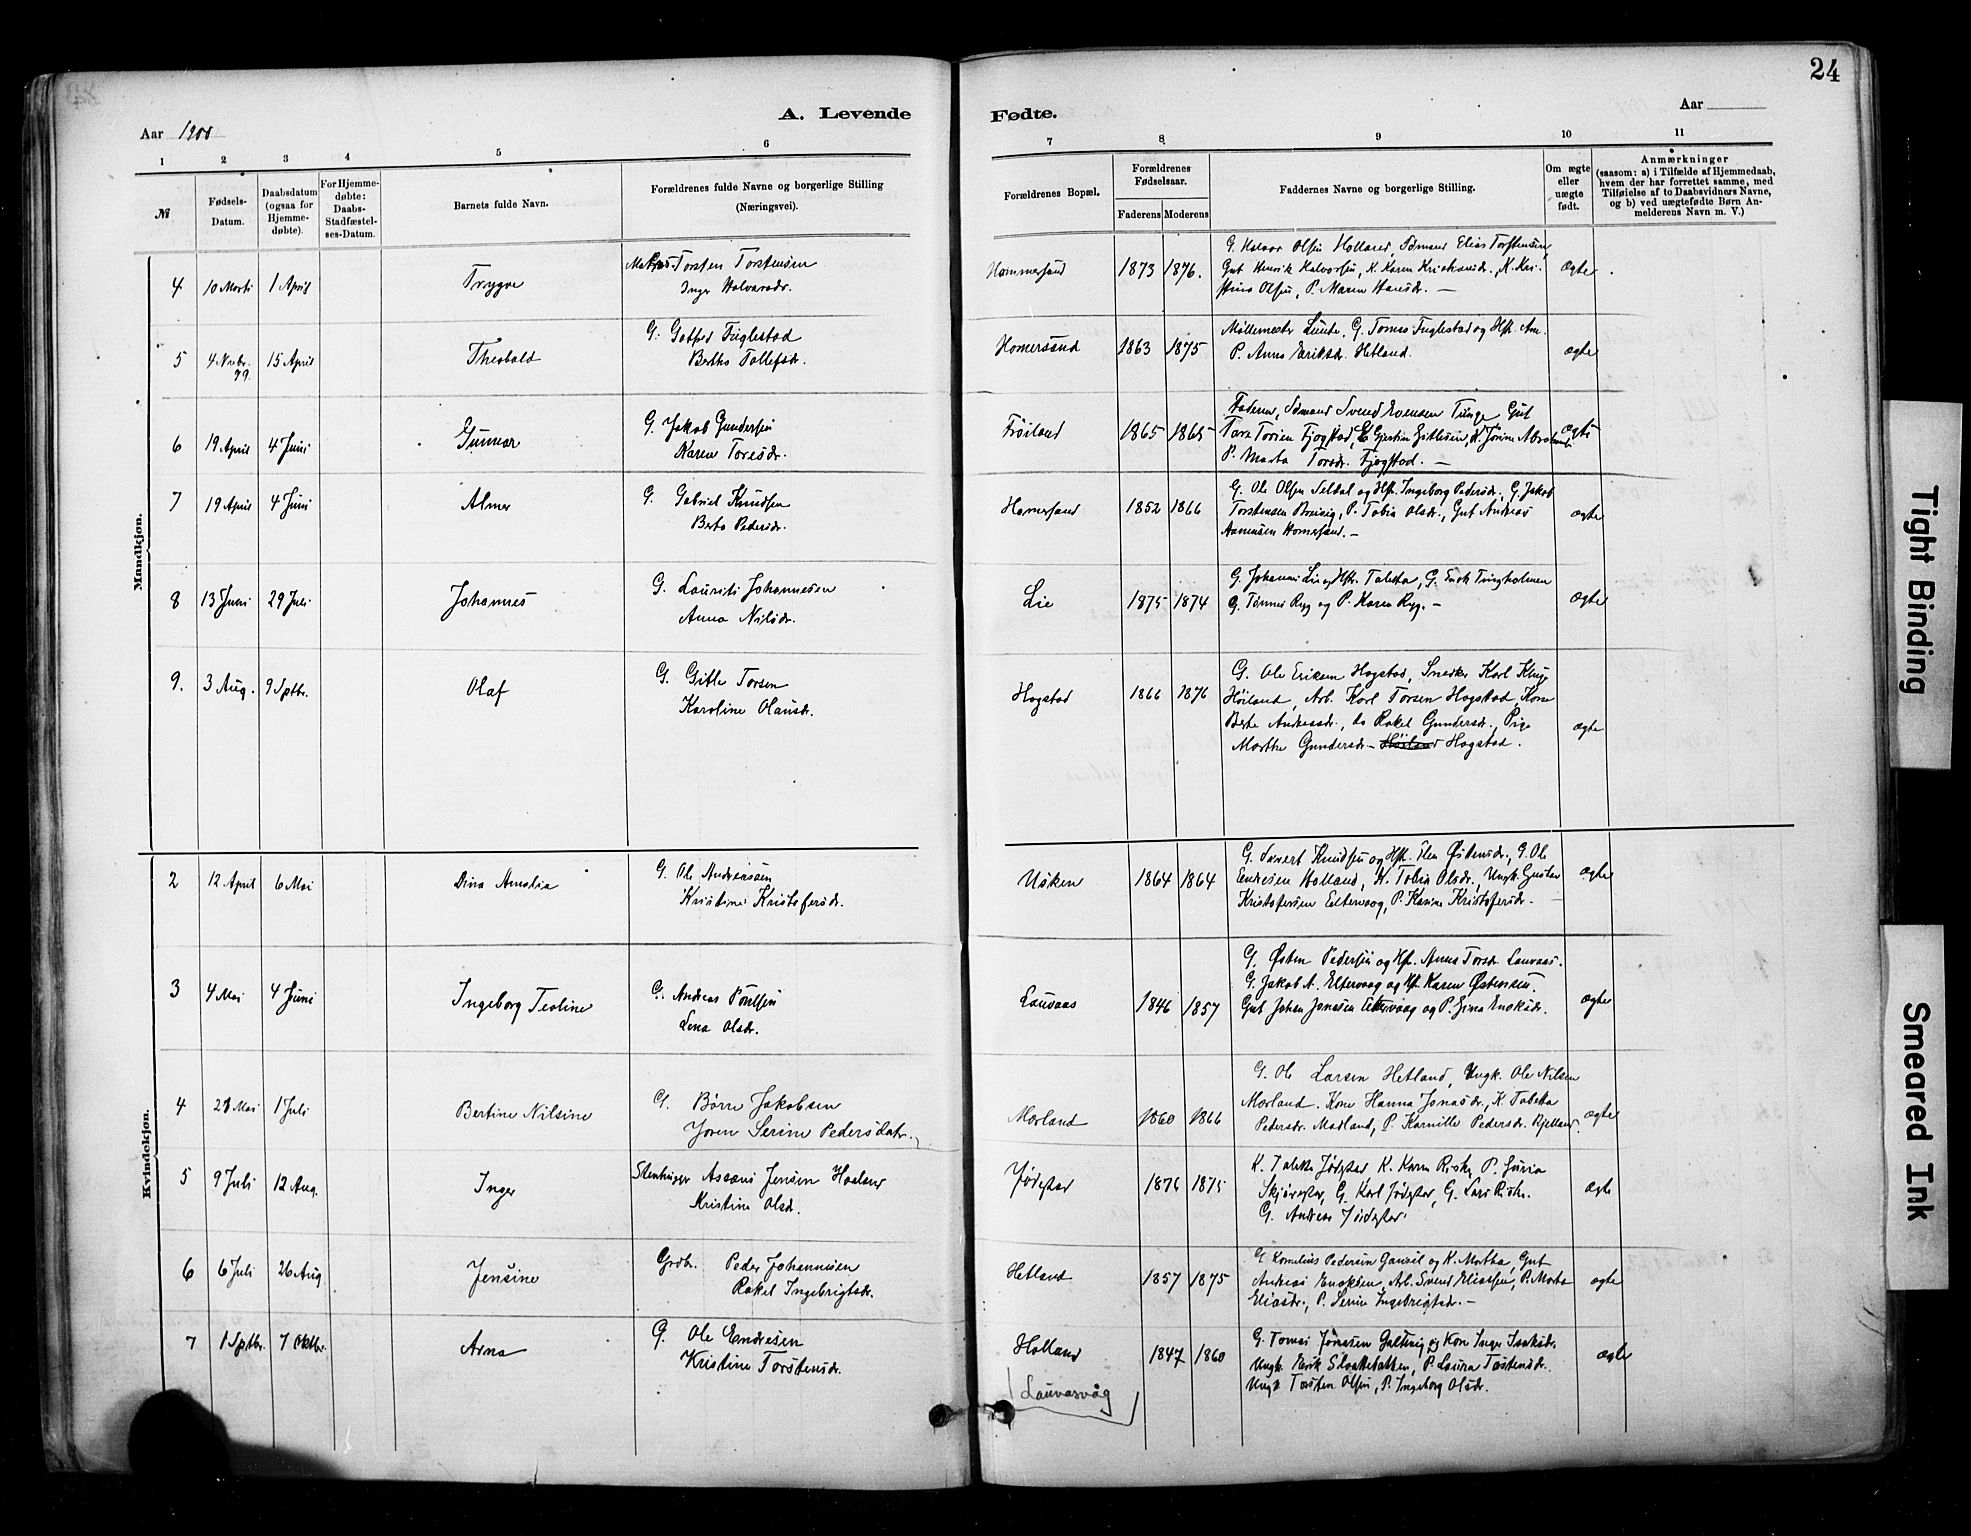 24
A. Levende
Fødte.
Aar 1900
Aar
1 2 3 4 5 6 7 8 9 10 11
№
Fødsels-Datum.
Daabsdatum (ogsaa for Hjemme-døbte).
For Hjemme-døbte: Daabs-Stadfæstel-ses-Datum.
Barnets fulde Navn.
Forældrenes fulde Navne og borgerlige Stilling
(Næringsvei).
Forældrenes Bopæl.
Forældrenes Fødselsaar.
Faderens Moderens
Faddernes Navne og borgerlige Stilling.
Om ægte eller uægte født.
Anmærkninger
(saasom: a) i Tilfælde af Hjemmedaab,
hvem der har forrettet samme, med
Tilføielse af to Daabsvidners Navne,
og b) ved uægtefødte Børn An-
melderens Navn m. V.)
Mandkjøn.
4 10 Marts 1 April Trygve Torsten Torstensen
Inger Halvorsdr.
Hommersand 1873 1876. G. Halvor Olsen Holland, Sømand Elias Torstensen,
Gut Henrik Halvorsen, K. Karen Kristiansdr., K. Kri-
stine Olsen, P. Maren Hansdr. —
ægte
5 4 Novbr. 99. 15 April Theobald G. Gotfred Fuglestad
Berthe Tollefsdr.
Homersand 1863 1875 Møllemester Lunde, G. Tomas Fuglestad og Hst. Ane.
P. Anna Eriksdr. Hetland.
ægte
6 19 April 4 Juni Gunnar G. Jakob Gundersen
Karen Toresdr.
Frøiland 1865 1865 Faderen, Sømand Svend Evensen Tunge, Gut
Tore Torsen Fjogstad,
P. Marta Torsdr. Fjogstad. —
ægte
7 19 April 4 Juni Almer G. Gabriel Knudsen
Berta Pedersdr.
Homersand 1852 1866 G. Ole Olsen Seldal og Hst. Ingeborg Pedersdr., G. Jakob
Torstensen Breivig, P. Tobia Olsdr., Gut Andreas
Aanensen Homersand. —
ægte
8 13 Juni 29 Juli Johannes G. Laurits Johannesen
Anna Nilsdr.
Lie 1875 1874 G. Johannes Lie og Hst. Tabeta, G. Enok Tingholmen
G. Tønnes Ryg og P. Karen Ryg. —
ægte
9. 3 Aug. 9 Sptbr. Olaf G. Gitle Torsen
Karoline Olausdr.
Hogstad 1866 1876 G. Ole Eriksen Hogstad, Snedker Karl Kluge
Høiland, Arb. Karl Torsen Hogstad, Kone
Berte Andreasdr., do Rakel Gundersdr., Pige
Marthe Gundersdr. — Høiland Hogstad.
ægte
Kvindekjøn.
2 12 April 6 Mai Dina Amalia G. Ole Andreassen
Kristine Kristofersdr.
Usken 1864 1864 G. Sivert Knudsen og Hst. Elen Østensdr., G. Ole
Endresen Holland, K. Tobia Olsdr., Ungk. Gustav
Kristofersen Eltervaag, P. Karine Kristofersdr. —
ægte
3 4 Mai 4 Juni Ingeborg Teoline G. Andreas Poulsen
Lena Olsdr.
Lauvaas 1846 1857 G. Østen Pedersen og Hst. Anna Torsdr. Lauvaas.
G. Jakob A. Eltervaag og Hst. Karen Østensen.
Gut Johan Jonassen Eltervaag og P. Gina Enoksdr.
ægte
4 28 Mai 1 Juli Bertine Nilsine G. Børre Jakobsen
Joren Serine Pedersdatr.
Mæland 1860 1866 G. Ole Larsen Hetland, Ungk. Ole Nilsen
Mæland. Kone Hanna Jonasdr., K. Tabitta
Pedersdr. Madland, P. Kornille Pedersdr. Bjelland.
ægte
5 9 Juli 12 Aug. Inger Stenhugger Assens Jensen Haaland
Kristine Olsdr.
Jødestad 1876 1875 K. Tabitta Jødestad K. Karen Riske, P. Juria
Skjørestad, G. Karl Jødestad, G. Lars Riske.
G. Andreas Jødestad.
ægte
6 6 Juli 26 Aug. Jensine Grdbr. Peder Johannesen
Rakel Ingebrigtsdr.
Hetland 1857 1875 G Kornelius Pedersen Gausel og K. Martha, Gut
Andreas Enoksen, Arb. Svend Eliassen, P. Marta
Eliasdr., P. Serine Ingebrigtsdr. —
ægte
7 1 Sptbr. 7 Oktbr. Arna G. Ole Endresen
Kristine Torstensdr.
Holland 1847 1860 G. Tomas Jonassen Galtvig og Kone Inger Isaksdr.
Ungk. Erik Slaattebakken, P. Laura Torstensdr.
Ungk Torsten Olsen, P. Ingeborg Olsdr.
ægte
Lauvasvåg
Tight Binding
Smeared Ink